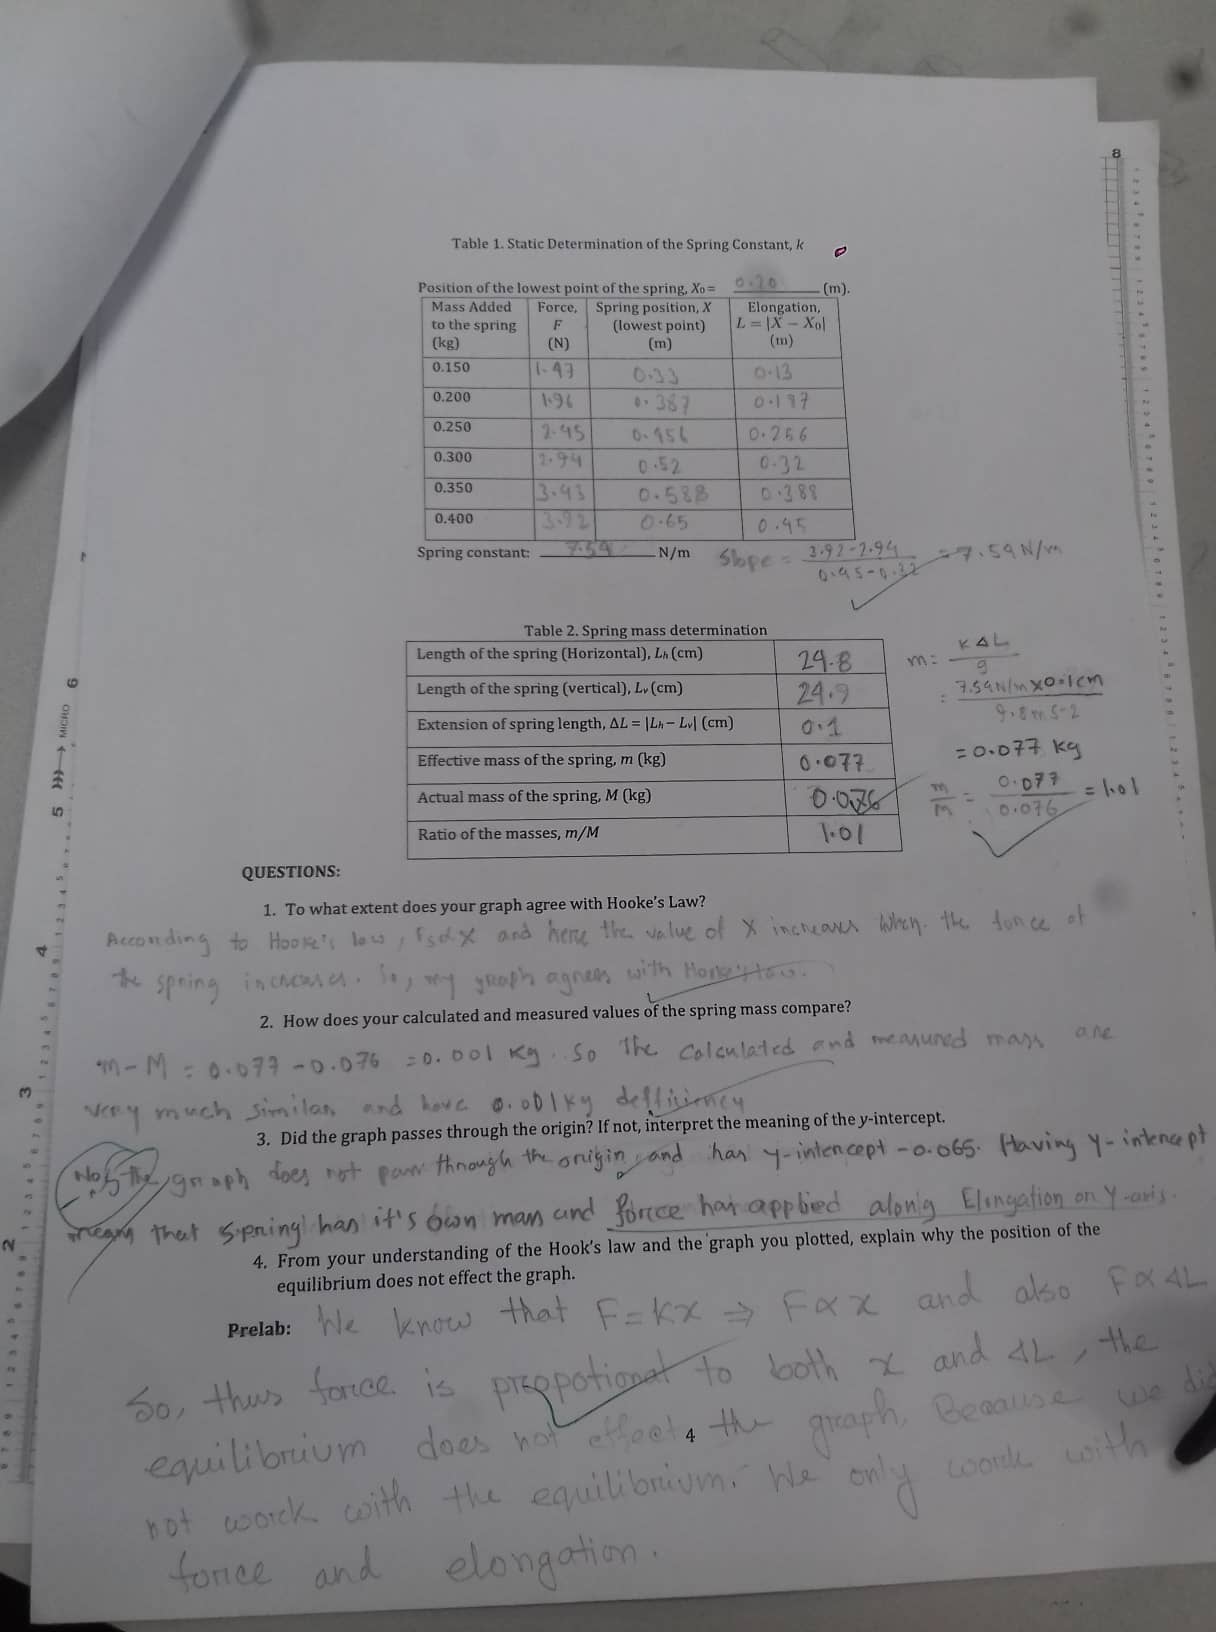 Table 1. Static Determination of the Spring Constant, k
Position of the lowest point of the spring, X₀ = 0.20 (m).
Mass Added to the spring (kg) Force, F (N) Spring position, X (lowest point) (m) Elongation, L = |X − X₀| (m)
0.150 1.47 0.33 0.13
0.200 1.96 0.387 0.187
0.250 2.45 0.456 0.256
0.300 2.94 0.52 0.32
0.350 3.43 0.588 0.388
0.400 3.92 0.65 0.45
Spring constant: 7.54 N/m Slope = 3.92-2.94 / 0.45-0.32 = 7.54 N/m
Table 2. Spring mass determination
Length of the spring (Horizontal), Lh (cm) 24.8
Length of the spring (vertical), Lv (cm) 24.9
Extension of spring length, ΔL = |Lh − Lv| (cm) 0.1
Effective mass of the spring, m (kg) 0.077
Actual mass of the spring, M (kg) 0.076
Ratio of the masses, m/M 1.01
m = KΔL / g
= 7.54N/m x 0.1cm / 9.8 m s-2
= 0.077 kg
m/M = 0.077 / 0.076 = 1.01
QUESTIONS:
1. To what extent does your graph agree with Hooke's Law?
According to Hooke's low, Fs∝x and here the value of X increases when the force of
the spring increases. So, my graph agrees with
2. How does your calculated and measured values of the spring mass compare?
m-M = 0.077-0.076 = 0.001 Kg. So The calculated and measured mass are
very much similar and have 0.001Kg
3. Did the graph passes through the origin? If not, interpret the meaning of the y-intercept.
No, The graph does not pass through the origin and has y-intercept -0.065. Having y-intercept
means that spring has it's own mass and force has applied along Elongation on Y-axis.
4. From your understanding of the Hook's law and the graph you plotted, explain why the position of the
equilibrium does not effect the graph.
Prelab: We know that F=KX ⇒ F∝x and also F∝ΔL
So, thus force is propotional to both x and ΔL, the
equilibrium does not effect the graph. Because we did
not work with the equilibrium. We only work with
force and elongation.
4
8
7
6
5 MICRO
4
3
2